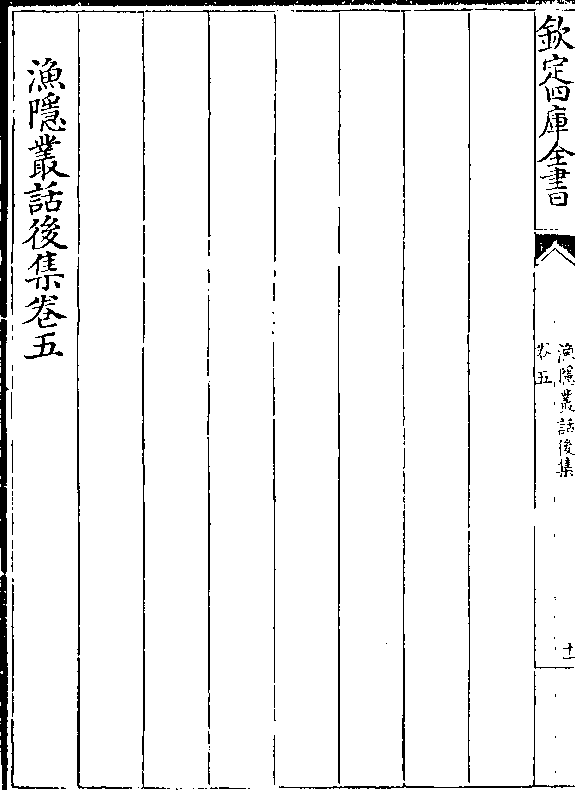 欽定四庫全書
漁隱叢話後集
卷五
十一
漁隱叢話後集卷五